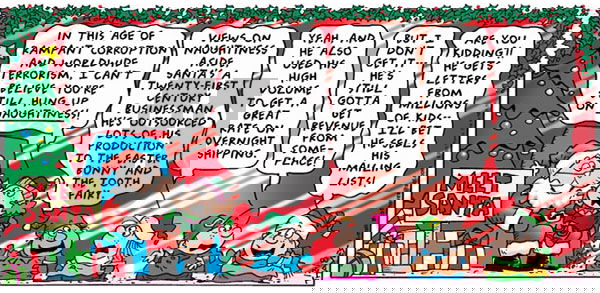 IN THIS AGE OF
RAMPANT CORRUPTION
AND WORLDWIDE
TERRORISM, I CAN'T
BELIEVE YOU'RE
STILL HUNG UP ON
"NAUGHTINESS".
VIEWS ON
NAUGHTINESS
ASIDE,
SANTA'S A
TWENTY-FIRST
CENTURY
BUSINESSMAN.
HE'S OUTSOURCED
LOTS OF HIS
PRODUCTION
TO THE EASTER
BUNNY AND
THE TOOTH
FAIRY.
YEAH, AND
HE ALSO
USED HIS
HIGH
VOLUME
TO GET A
GREAT
RATE ON
OVERNIGHT
SHIPPING.
BUT I
DON'T
GET IT.
HE'S
STILL
GOTTA
GET
REVENUE
FROM
SOME-
PLACE!
ARE YOU
KIDDING?!
HE GETS
LETTERS
FROM
MILLIONS
OF KIDS...
I'LL BET
HE SELLS
HIS
MAILING
LISTS!
MEET
SANTA